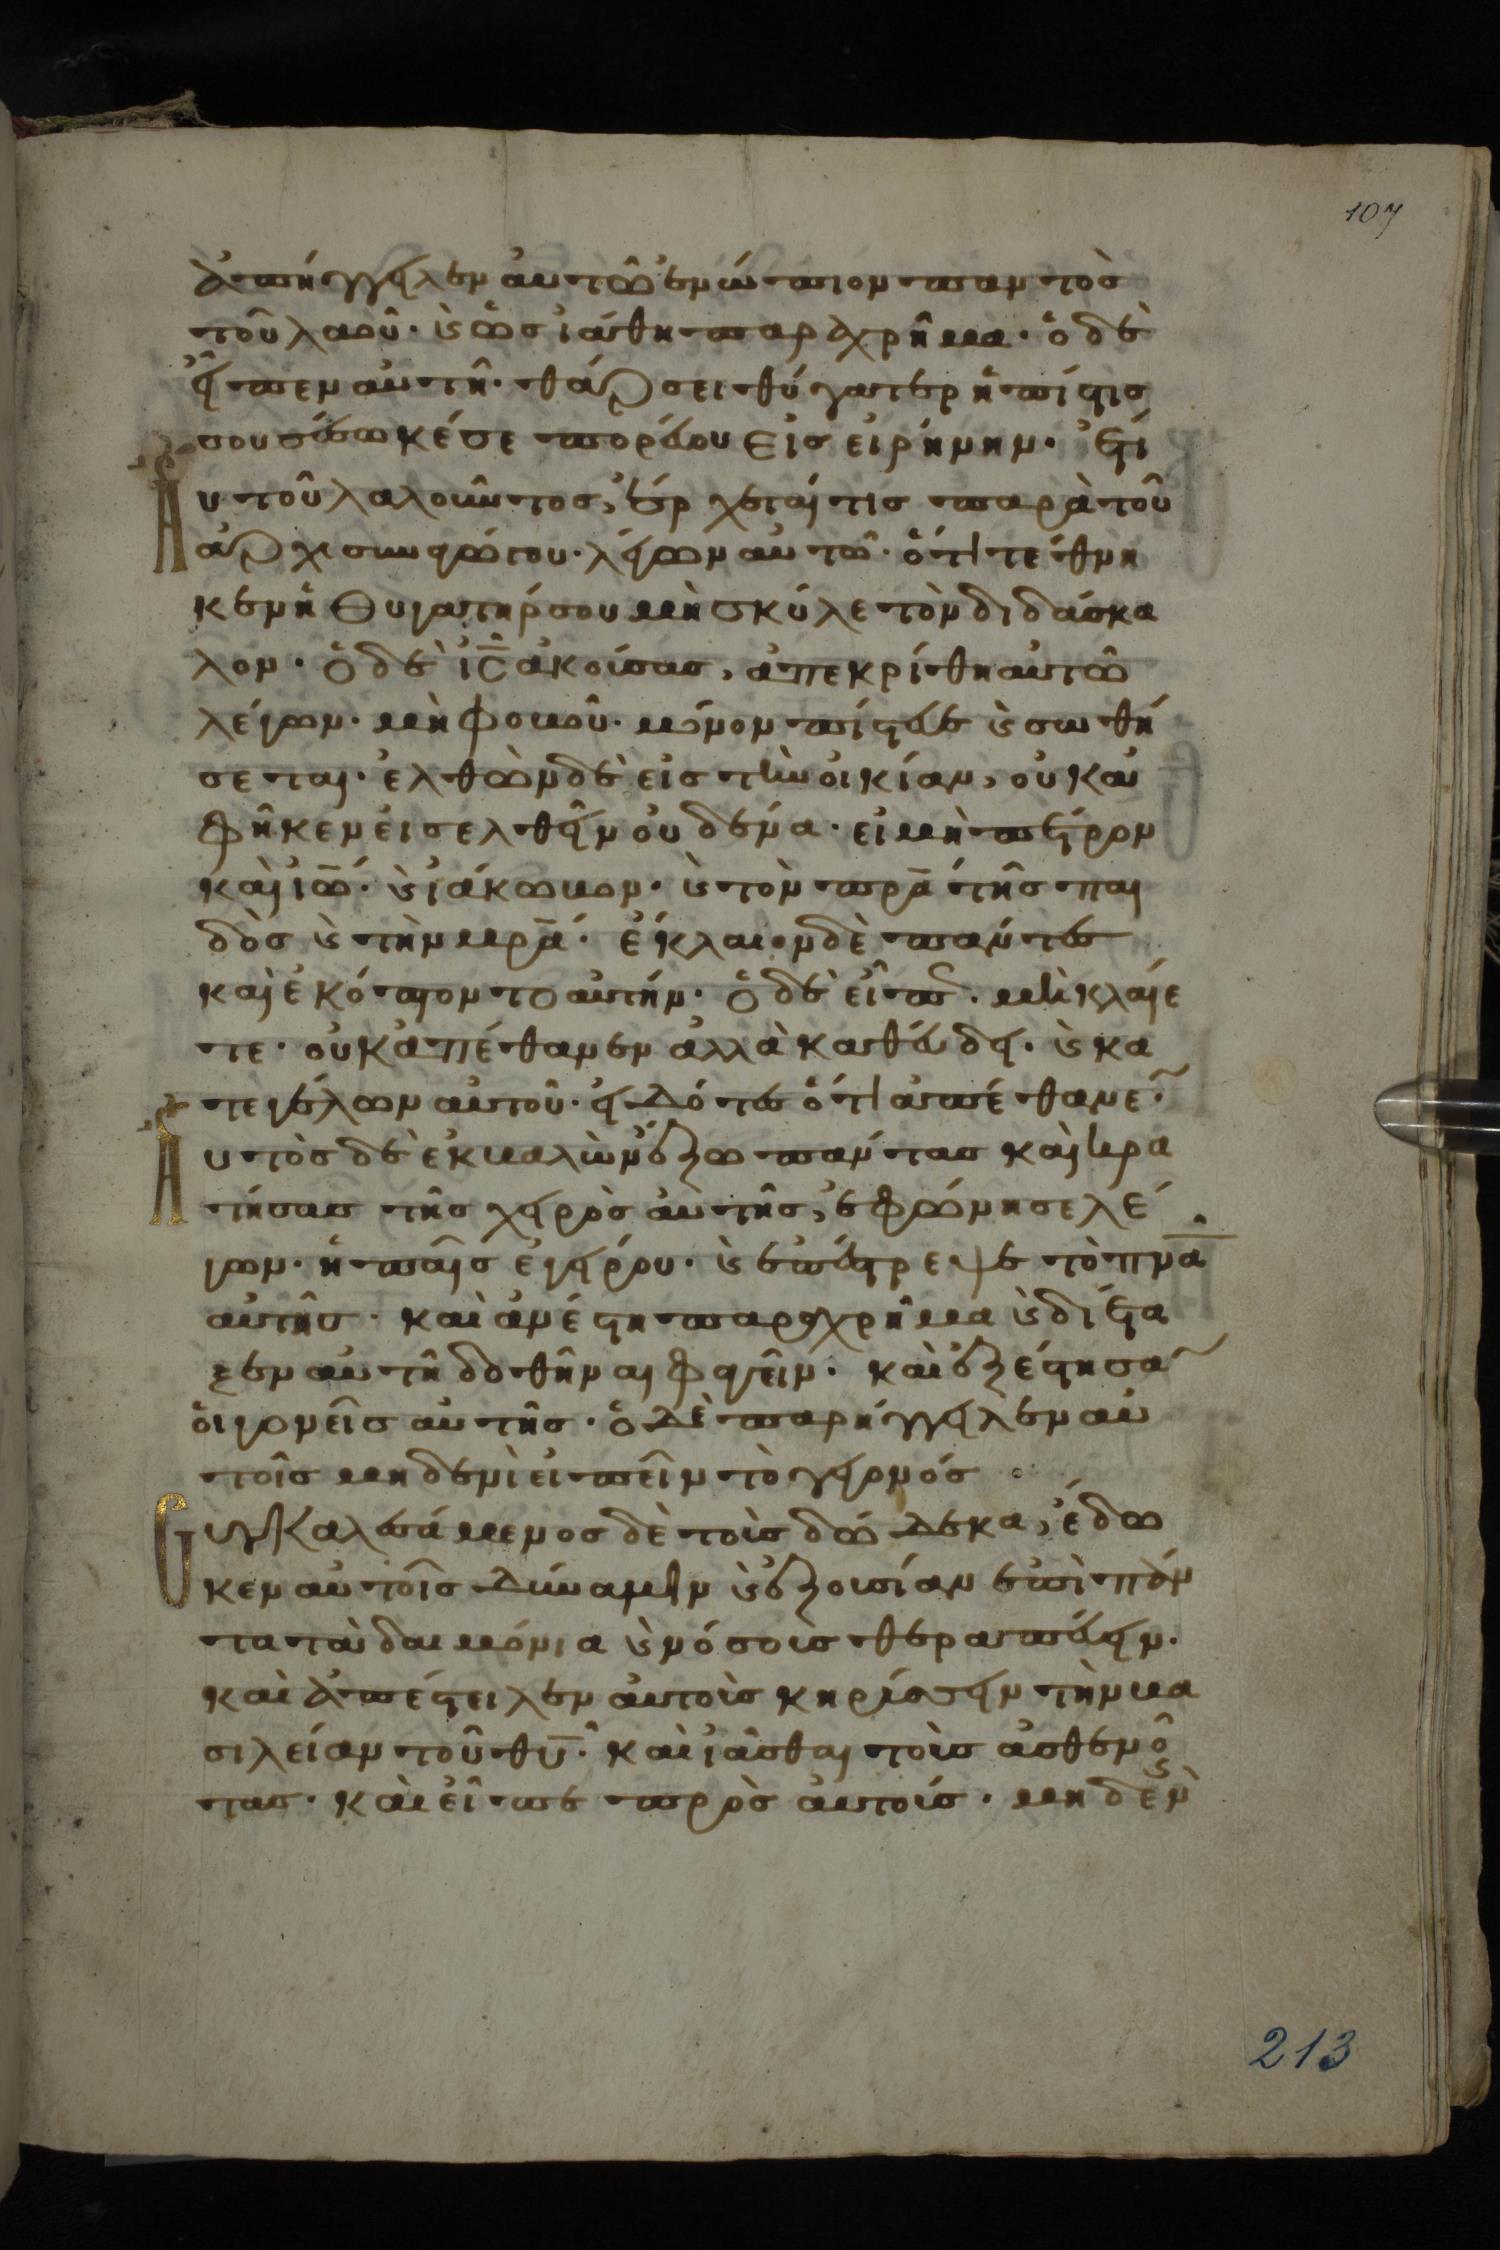 107
ἀπήγγειλεν αὐτῶ ἐνώπιον παντὸς
τοῦ λαοῦ· ϗ ὡς ἰάθη παραχρῆμα· ὁ δὲ
εἶπεν αὐτῆ· θάρσει θύγατερ ἡ πίστις
σου σέσωκέ σε πορεύου εἰς εἰρήνην· ἔτι
Αυτοῦ λαλοῦντος, ἔρχεταί τις παρὰ τοῦ
ἀρχισυναγώγου· λέγων αὐτῶ· ὅτι τέθνη
κεν ἡ θυγατήρ σου μὴ σκύλε τὸν διδάσκα
λον· ὁ δὲ ἰ̅ς̅ ἀκούσας, ἀπεκρίθη αὐτῶ
λέγων· μὴ φοβοῦ· μόνον πίστευε ϗ σωθή
σεται· ἐλθὼν δὲ εἰς τὴν οἰκίαν, οὐκ ἀ
φῆκεν εἰσελθεῖν οὐδένα· εἰ μὴ πέτρον
καὶ ἰω̅· ϗ ἰάκωβον· ϗ τὸν πρ̅α τῆς παι
δὸς ϗ τὴν μρ̅α· ἔκλαιον δὲ πάντες
καὶ ἐκόπτοντο αὐτήν· ὁ δὲ εἶπε· μὴ κλαίε
τε· οὐκ ἀπέθανεν ἀλλὰ καθεύδει· ϗ κα
τεγέλων αὐτοῦ· εἰδότες ὅτι ἀπέθανε̅·
Αυτὸς δὲ ἐκβαλὼν ἔξω πάντας καὶ κρα
τήσας τῆς χειρὸς αὐτῆς, ἐφώνησε λέ
γων· ἡ παῖς ἐγείρου· ϗ ἐπέστρεψε τὸ πν̅α
αὐτῆς· καὶ ἀνέστη παραχρῆμα ϗ διέτα
ξεν αὐτῆ δοθῆναι φαγεῖν· καὶ ἐξέστησα̅
οἱ γονεῖς αὐτῆς· ὁ δὲ παρήγγειλεν αὐ
τοῖς μηδενὶ εἰπεῖν τὸ γεγονός
Συγκαλεσάμενος δὲ τοὺς δώδεκα, ἔδω
κεν αὐτοῖς δύναμιν ϗ ἐξουσίαν ἐπὶ πάν
τα τὰ δαιμόνια ϗ νόσους θεραπεύειν·
καὶ ἀπέστειλεν αὐτοὺς κηρύσσειν τὴν βα
σιλείαν τοῦ θ̅υ̅· καὶ ἰᾶσθαι τοὺς ἀσθενοῦ
τας· καὶ εἶπε πρὸς αὐτούς· μηδὲν
213